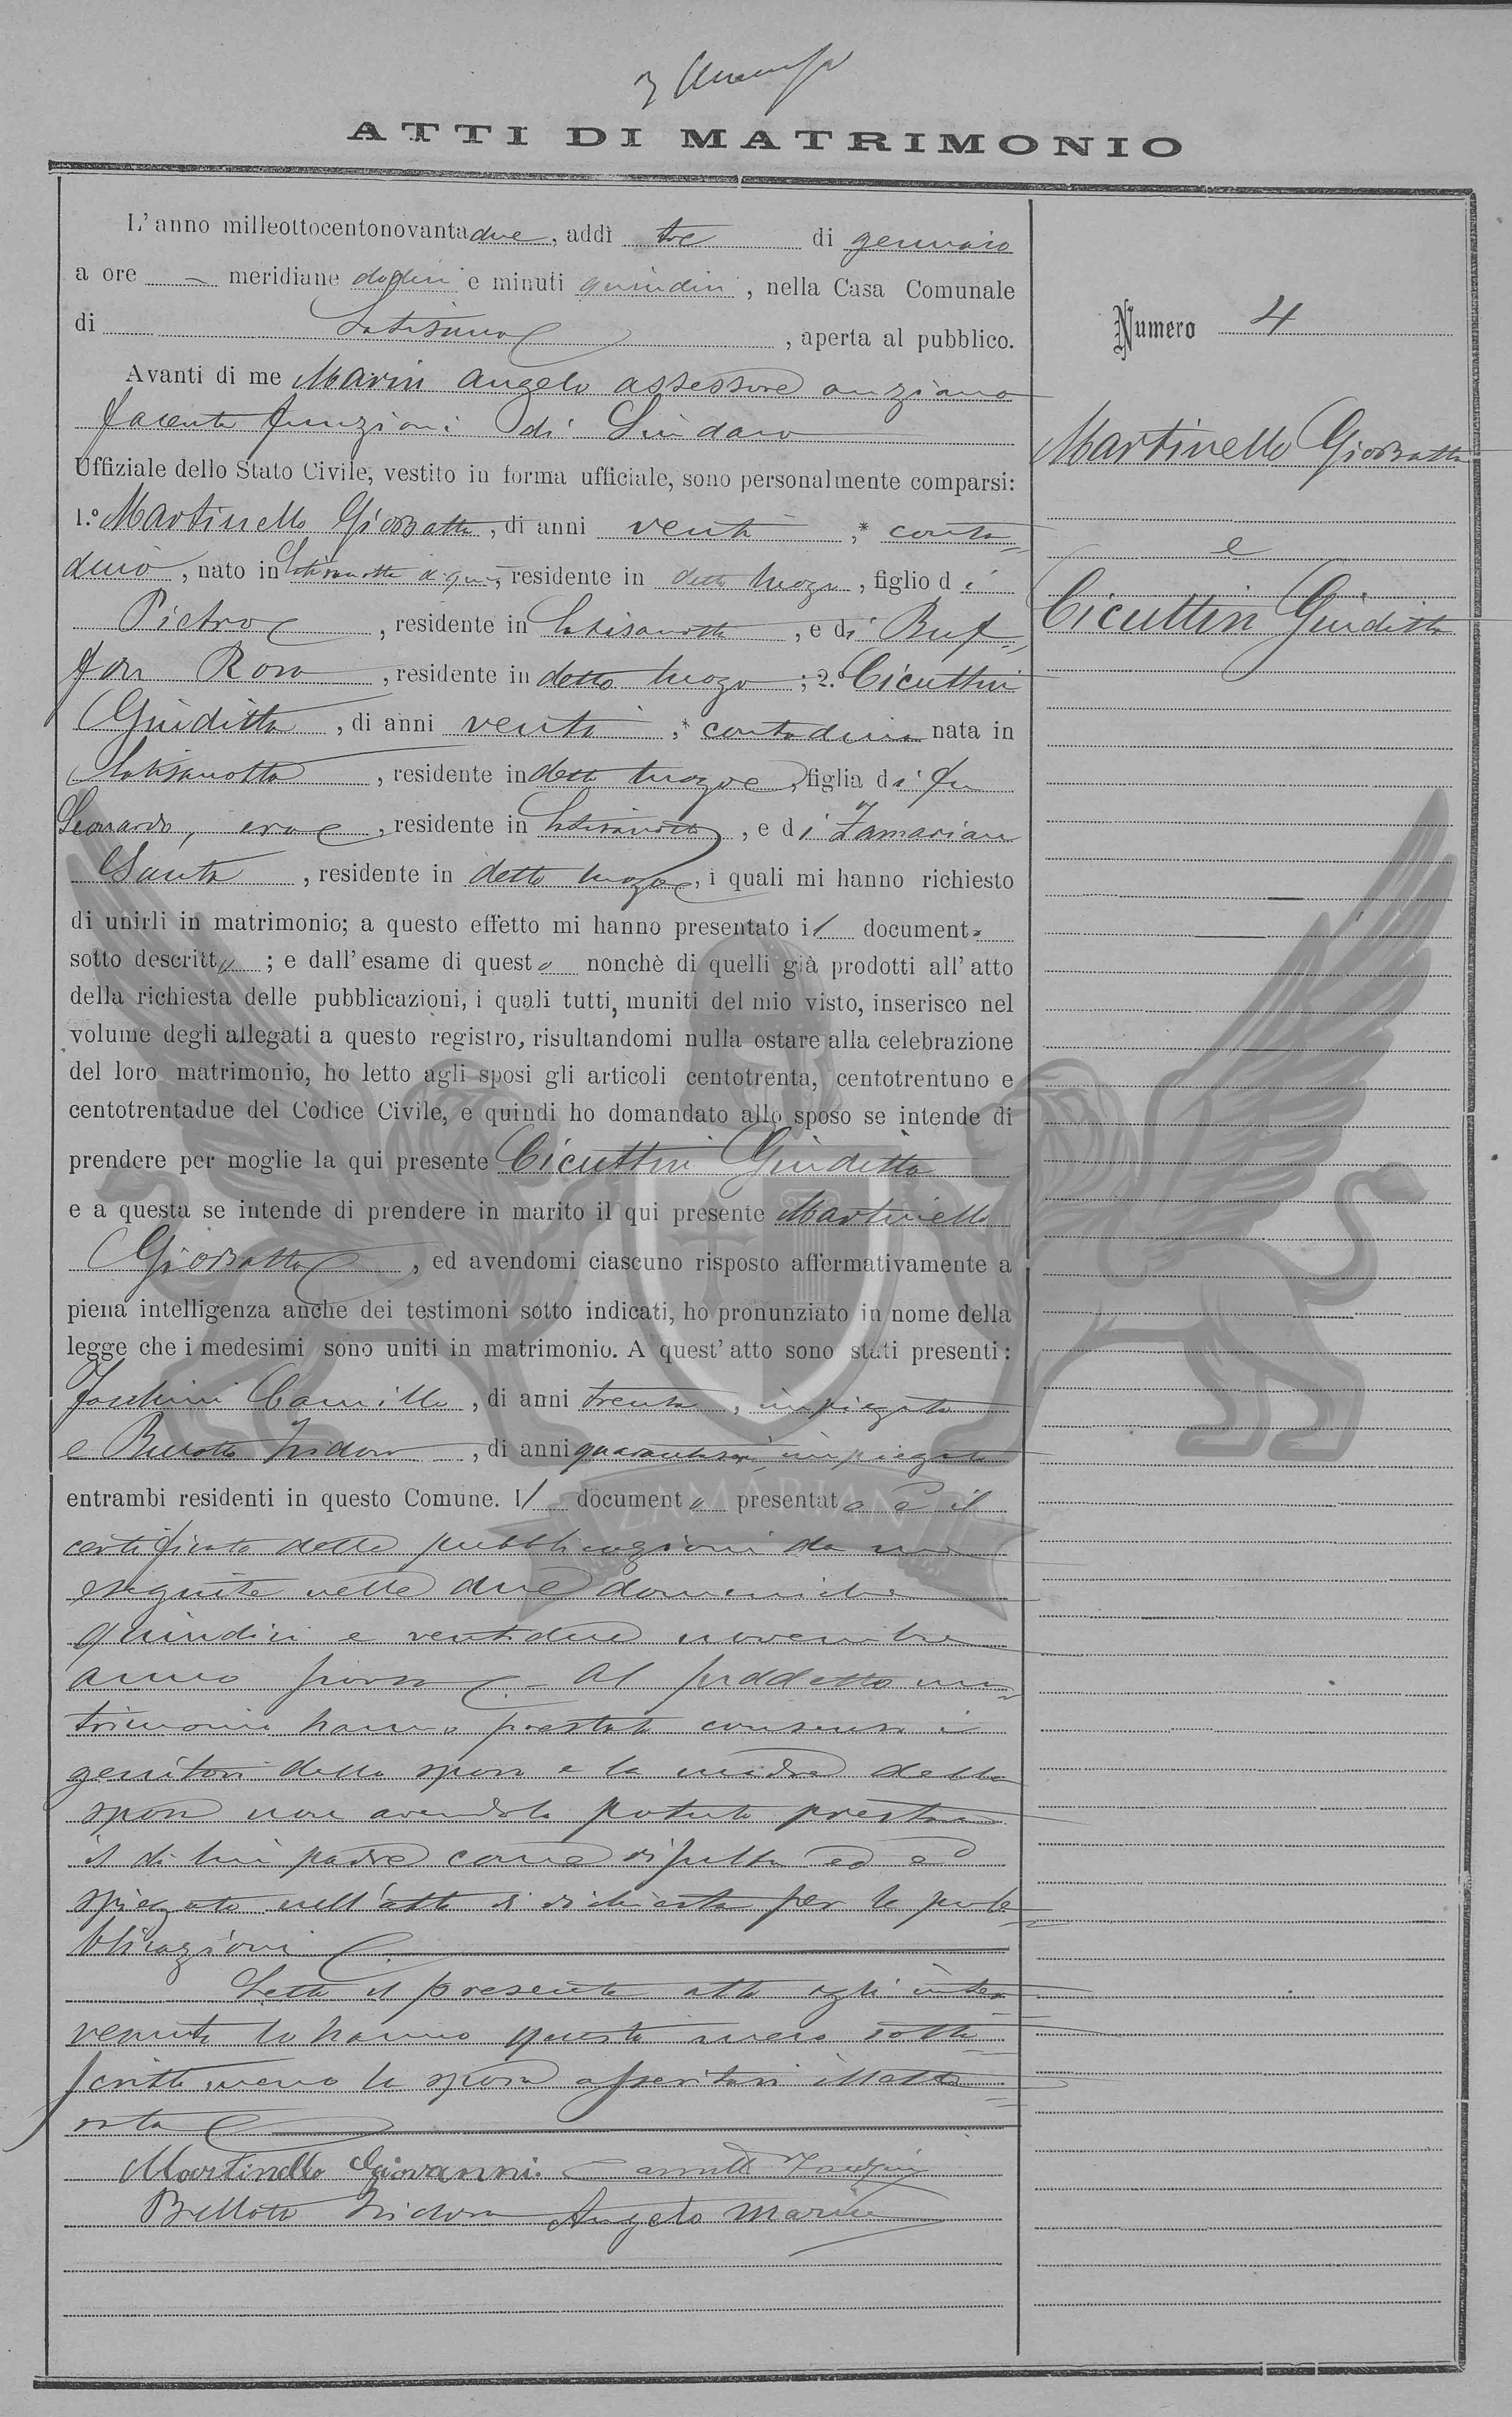 ATTI DI MATRIMONIO
L'anno milleottocentonovantadue, addì tre di gennaio
a ore meridiane dodici e minuti quindici, nella Casa Comunale
di Latisana, aperta al pubblico.
Numero 4
Avanti di me Marin Angelo assessore anziano
facente funzioni di Sindaco
Martinello GioBatta
Uffiziale dello Stato Civile, vestito in forma ufficiale, sono personalmente comparsi:
1.º Martinello GioBatta, di anni venti,* conta=
dino, nato in Latisanotta, residente in detto luogo, figlio di
e
Pietro, residente in Latisanotta, e di Buf=
Cicuttin Giuditta
fon Rosa, residente in detto luogo; 2.º Cicuttin
Giuditta, di anni venti,* contadina nata in
Latisanotta, residente in detto luogo, figlia di fu
Leonardo, era, residente in Latisanotta, e di Zamarian
Santa, residente in detto luogo, i quali mi hanno richiesto
di unirli in matrimonio; a questo effetto mi hanno presentato il documento
sotto descritto; e dall'esame di questo nonchè di quelli già prodotti all'atto
della richiesta delle pubblicazioni, i quali tutti, muniti del mio visto, inserisco nel
volume degli allegati a questo registro, risultandomi nulla ostare alla celebrazione
del loro matrimonio, ho letto agli sposi gli articoli centotrenta, centotrentuno e
centotrentadue del Codice Civile, e quindi ho domandato allo sposo se intende di
prendere per moglie la qui presente Cicuttin Giuditta
e a questa se intende di prendere in marito il qui presente Martinello
GioBatta, ed avendomi ciascuno risposto affermativamente a
piena intelligenza anche dei testimoni sotto indicati, ho pronunziato in nome della
legge che i medesimi sono uniti in matrimonio. A quest'atto sono stati presenti:
Camillo, di anni trenta, impiegato
e Bellotto Isidoro, di anni quarantasei, impiegato
entrambi residenti in questo Comune. Il documento presentato è il
ZAMARIAN
certificato delle pubblicazioni da me
eseguite nelle due domeniche
quindici e ventidue novembre
anno scorso. Al suddetto ma=
trimonio hanno prestato consenso i
genitori dello sposo e la madre della
sposa non avendolo potuto prestare
il di lei padre come risulta ed è
spiegato nell'atto di richiesta per le pub=
blicazioni
Letto il presente atto agli inter=
venuti lo hanno questi meco sotto=
scritto meno la sposa assertasi illette=
rata
Martinello Giovanni. Camillo
Bellotto Isidoro Angelo Marin